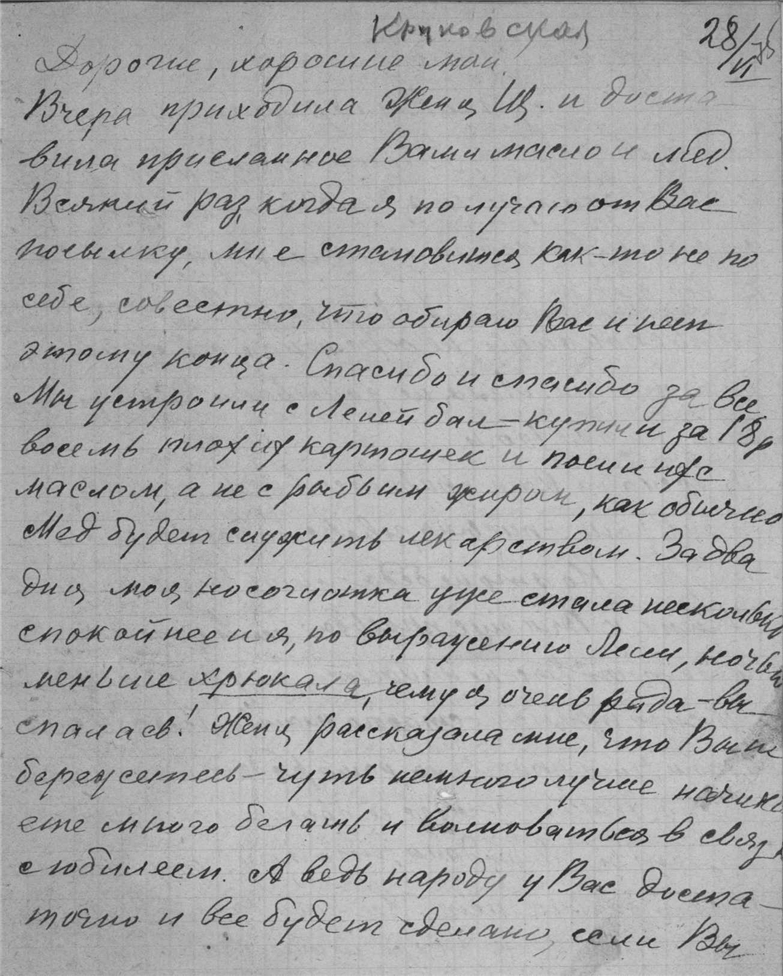 Круковская
28/VI
Дорогие, хорошие мои.
Вчера приходила Женя Щ. и доста-
вила присланное Вами масло и мед.
Всякий раз, когда я получаю от Вас
посылку, мне становится как-то не по
себе, совестно, что обираю Вас и нет
этому конца. Спасибо и спасибо за все.
Мы устроили с Лелей бал – купили за 18р
восемь плохих картошек и поели их с
маслом, а не с рыбьим жиром, как обычно
Мед будет служить лекарством. За два
дня моя носоглотка уже стала несколько
спокойнее и я, по выражению Лели, ночью
меньше хрюкала, чему я очень рада – вы-
спалась! Женя рассказала мне, что Вы не
бережетесь – чуть немного лучше начина
ете много бегать и волноваться в связи
с юбилеем. А ведь народу у Вас доста-
точно и все будет сделано, если Вы